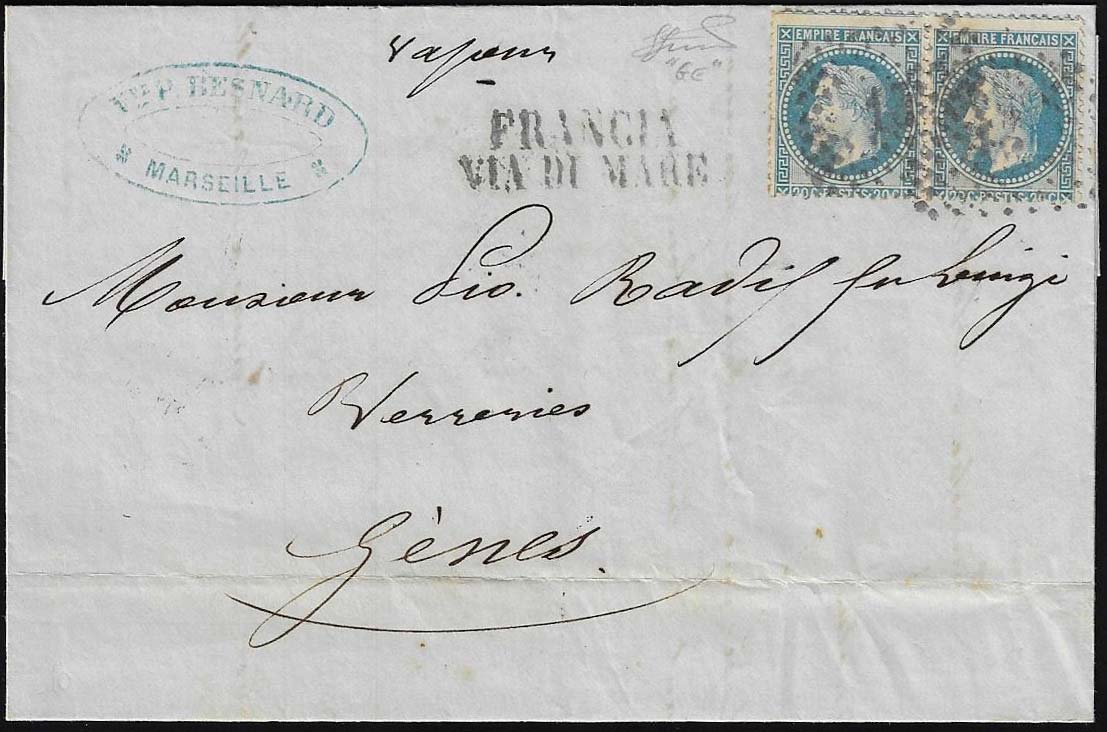 vapeur
"GE"
EMPIRE FRANCAIS
EMPIRE FRANCAIS
Vve P. BESNARD
MARSEILLE
FRANCIA
VIA DI MARE
20 CENTS 20 C
20 CENTS 20 C
Monsieur Gio. Radif fu Luigi
Verreries
Gènes